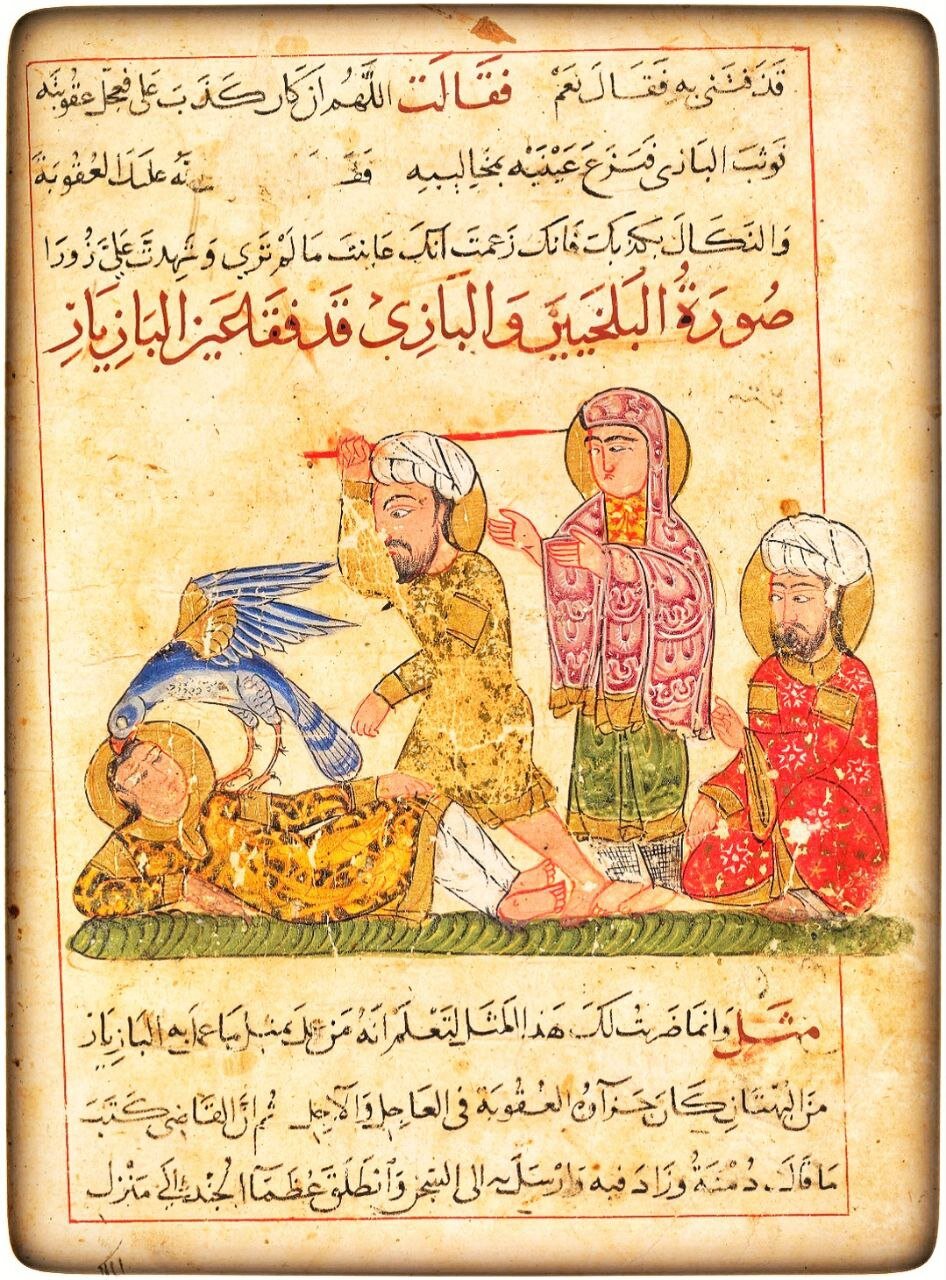 قد قذفتني به فقال نعم فقالت اللهم ان كان كذب علي فعجل عقوبته
فوثب البازي فنزع عينيه بمخاليبه عليك العقوبة
والنكال بكذبك فانك زعمت انك عاينت ما لم تري وشهدت علي زورا
صورة البلخيين والبازي قد فقا عين البازيار
مثل وانما ضربت لك هذا المثل لتعلم انه من عمل بمثل ما عمل به البازيار
من البهتان كان جزآوه العقوبة في العاجل والآجل ثم ان القاضي كتب
ما قال دمنة وزاد فيه وارسل به الى السجن وانطلق عظمآ الجند الى منزل